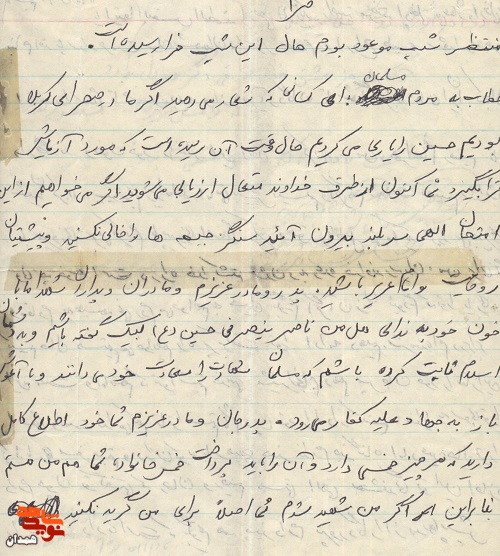 منتظر شب موعود بودم حال این شب فرا رسیده است.
خطاب به مردم مسلمان: ای کسانی که شعار می دهید اگر ما در صحرای کربلا
بودیم حسین را یاری می کردیم حال وقت آن رسیده است که مورد آزمایش
قرار بگیرید شما اکنون از طرف خداوند متعال ارزیابی می شوید اگر می خواهیم از این
امتحان الهی سر بلند بیرون آئید سنگر جبهه ها را خالی نکنید و پشتیبان
روحانیت و امام عزیز باشید. پدر و مادر عزیزم و مادران و پدران شهدا ما با
خون خود به ندای هل من ناصر ینصرنی حسین (ع) لبیک گفته باشیم و به دشمنان
اسلام ثابت کرده باشیم که مسلمان شهادت را سعادت خود می دانند و با آغوش
باز به جهاد علیه کفار می رود. پدر جان و مادر عزیزم شما خود اطلاع کامل
دارید که هر چیز خمسی دارد و آن را باید پرداخت خمس خانواده شما هم من هستم
بنابراین اگر من شهید شدم شما اصلاً برای من گریه نکنید
نوید